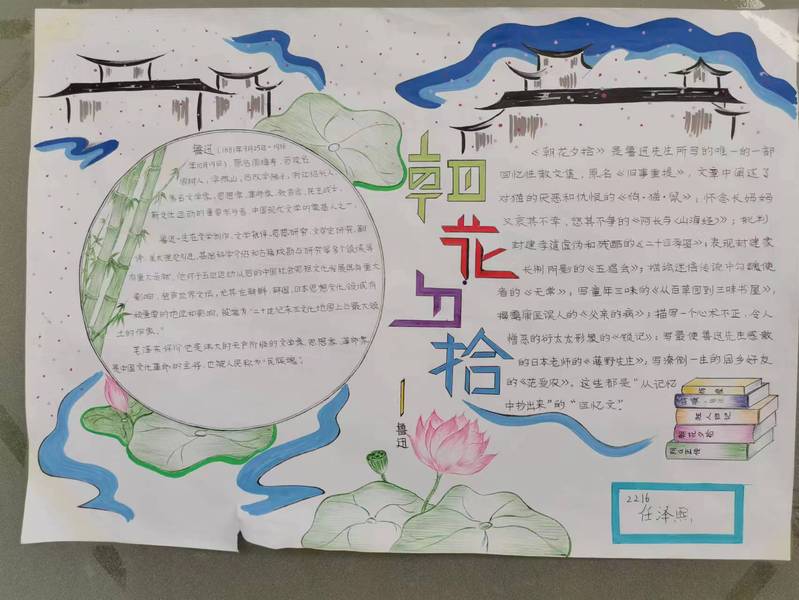 鲁迅（1881年9月25日-1936
年10月19日），原名周樟寿，后改名
周树人，字豫山，后改字豫才，浙江绍兴人
著名文学家、思想家、革命家、教育家、民主战士，
新文化运动的重要参与者，中国现代文学的奠基人之一。
鲁迅一生在文学创作、文学批评、思想研究、文学史研究、翻
译、美术理论引进、基础科学介绍和古籍校勘与研究等多个领域具
有重大贡献。他对于五四运动以后的中国社会思想文化发展具有重大
影响，蜚声世界文坛，尤其在韩国、日本思想文化领域有
极重要的地位和影响，被誉为“二十世纪东亚文化地图上占最大领
土的作家。”
毛泽东评价他是伟大的无产阶级的文学家、思想家、革命家，
是中国文化革命的主将，也被人民称为“民族魂”。
朝花夕拾
—鲁迅
《朝花夕拾》是鲁迅先生所写的唯一的一部
回忆性散文集，原名《旧事重提》，文章中阐述了
对猫的厌恶和仇恨的《狗·猫·鼠》；怀念长妈妈
又哀其不幸，怒其不争的《阿长与〈山海经〉》；批判
封建孝道虚伪和残酷的《二十四孝图》；表现封建家
长制阴影的《五猖会》；描绘迷信传说中勾魂使
者的《无常》，写童年三味的《从百草园到三味书屋》，
揭露庸医误人的《父亲的病》；描写一个心术不正，令人
憎恶的衍太太形象的《锁记》；写最使鲁迅先生感激
的日本老师的《藤野先生》，写潦倒一生的同乡好友
的《范爱农》。这些都是“从记忆
中抄出来”的“回忆文”
狂人日记
朝花夕拾
阿Q正传
2216
任泽熙